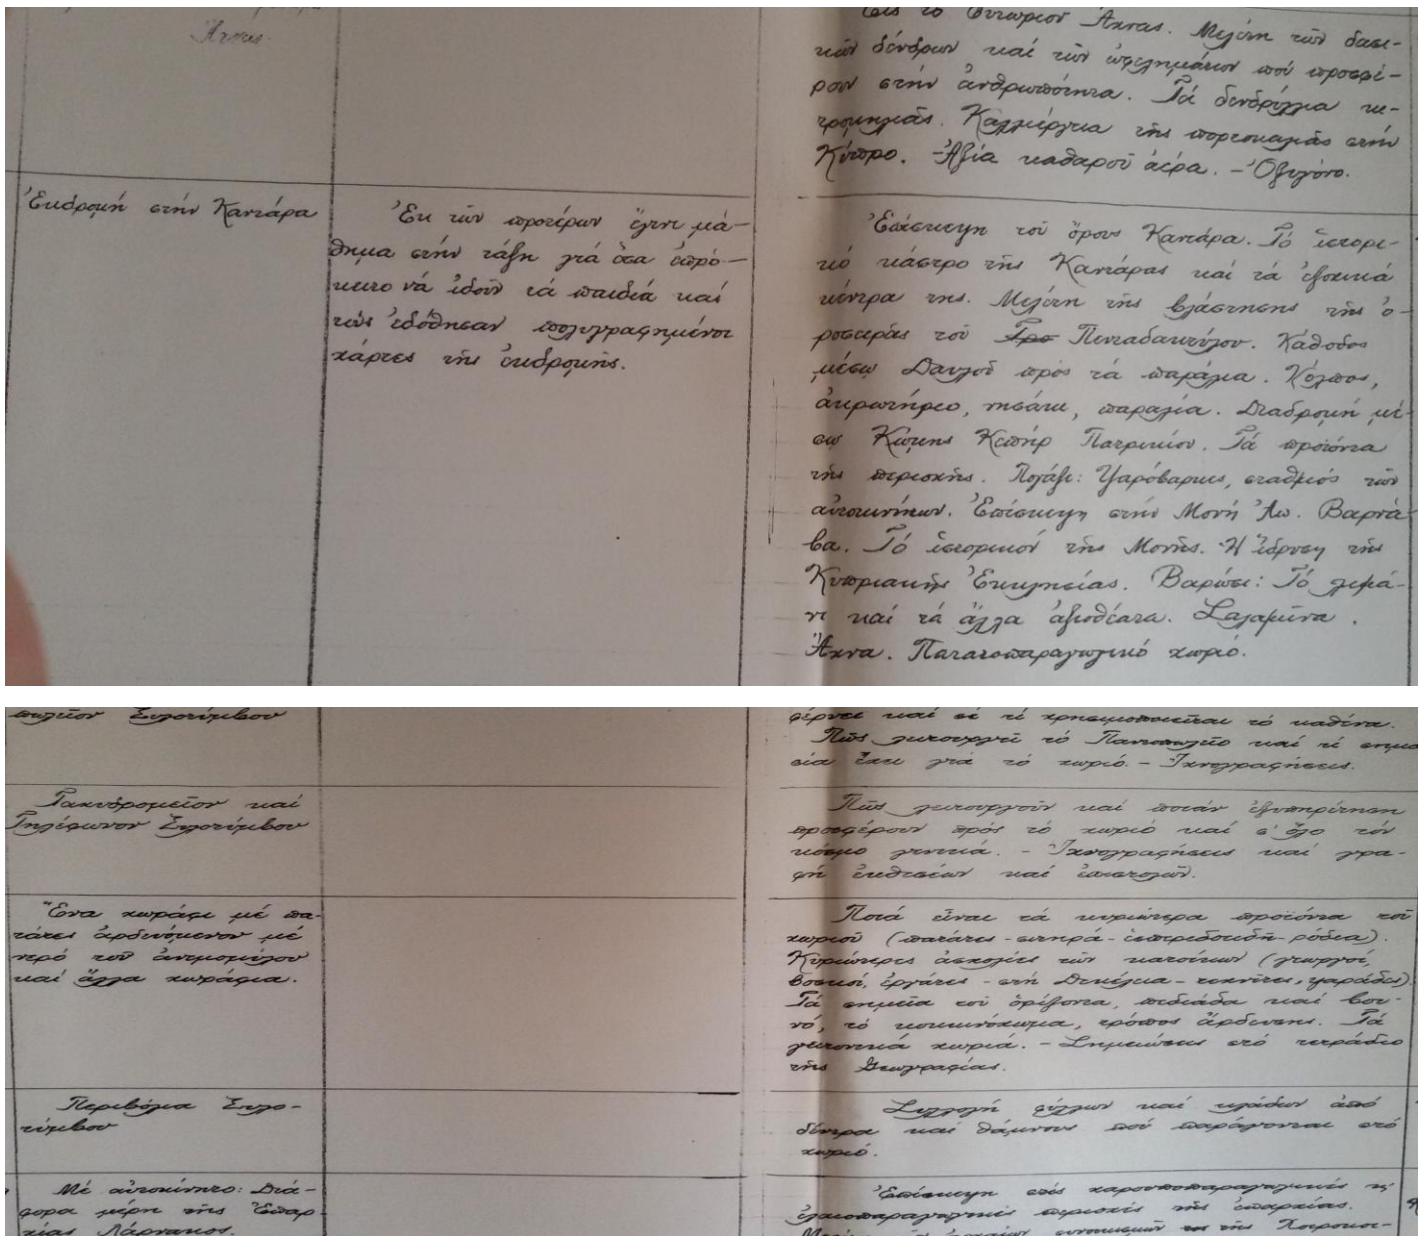 Ἄχνας.
Εἰς τό Φυτώριον Ἄχνας. Μελέτη τῶν δασι-
κῶν δένδρων καί τῶν ὠφελημάτων πού προσφέ-
ρουν στήν ἀνθρωπότητα. Τά δενδρύλλια κι-
τρομηλιᾶς. Καλλιέργεια τῆς πορτοκαλιᾶς στήν
Κύπρο. - Ἀξία καθαροῦ ἀέρα. - Ὀξυγόνο.
Ἐκδρομή στήν Καντάρα
Ἐκ τῶν προτέρων ἔγινε μά-
θημα στήν τάξη γιά ὅσα ἐπρό-
κειτο νά ἰδοῦν τά παιδιά καί
τούς ἐδόθησαν πολυγραφημένοι
χάρτες τῆς ἐκδρομῆς.
Ἐπίσκεψη τοῦ ὄρους Καντάρα. Τό ἱστορι-
κό κάστρο τῆς Καντάρας καί τά ἐξοχικά
κέντρα της. Μελέτη τῆς βλάστησης τῆς ὀ-
ροσειρᾶς τοῦ Πενταδακτύλου. Κάθοδος
μέσω Δαυλοῦ πρός τά παράλια. Κόλπος,
ἀκρωτήριο, νησάκι, παραλία. Διαδρομή μέ-
σω Κώμης Κεπήρ Πατρικίου. Τά προϊόντα
τῆς περιοχῆς. Πογάζι: Ψαρόβαρκες, σταθμός τῶν
αὐτοκινήτων. Ἐπίσκεψη στήν Μονή Ἀπ. Βαρνά-
βα. Τό ἱστορικόν τῆς Μονῆς. Ἡ ἵδρυση τῆς
Κυπριακῆς Ἐκκλησίας. Βαρώσι: Τό λιμά-
νι καί τά ἄλλα ἀξιοθέατα. Σαλαμῖνα.
Ἄχνα. Πατατοπαραγωγικό χωριό.
πωλεῖον Ξυλοτύμβου
φέρνει καί σέ τί χρησιμοποιεῖται τό καθένα.
Πῶς λειτουργεῖ τό Παντοπωλεῖο καί τί σημα
σία ἔχει γιά τό χωριό. - Ἰχνογραφήσεις.
Ταχυδρομεῖον καί
Τηλέφωνον Ξυλοτύμβου
Πῶς λειτουργοῦν καί ποιάν ἐξυπηρέτηση
προσφέρουν πρός τό χωριό καί σ' ὅλο τόν
κόσμο γενικά. - Ἰχνογραφήσεις καί γρα-
φή ἐκθέσεων καί ἐπιστολῶν.
Ἕνα χωράφι μέ πα-
τάτες ἀρδευόμενον μέ
νερό τοῦ ἀνεμομύλου
καί ἄλλα χωράφια.
Ποιά εἶναι τά κυριώτερα προϊόντα τοῦ
χωριοῦ (πατάτες - σιτηρά - ἑσπεριδοειδῆ - ρόδια).
Κυριώτερες ἀσχολίες τῶν κατοίκων (γεωργοί,
βοσκοί, ἐργάτες - στή Δεκέλεια - τεχνίτες, ψαράδες)
Τά σημεῖα τοῦ ὁρίζοντα, πεδιάδα καί βου-
νό, τό κοκκινόχωμα, τρόπος ἄρδευσης. Τά
γειτονικά χωριά. - Σημειώσεις στό τετράδιο
τῆς Γεωγραφίας.
Περιβόλια Ξυλο-
τύμβου
Συλλογή φύλλων καί κλάδων ἀπό
δέντρα καί θάμνους πού παράγονται στό
χωριό.
Μέ αὐτοκίνητο: Διά-
φορα μέρη τῆς Ἐπαρ-
χίας Λάρνακος.
Ἐπίσκεψη στίς χαρουποπαραγωγικές κ'
ἐλαιοπαραγωγικές περιοχές τῆς ἐπαρχίας.
συνοικισμῶν τῆς Χοιροκοι-